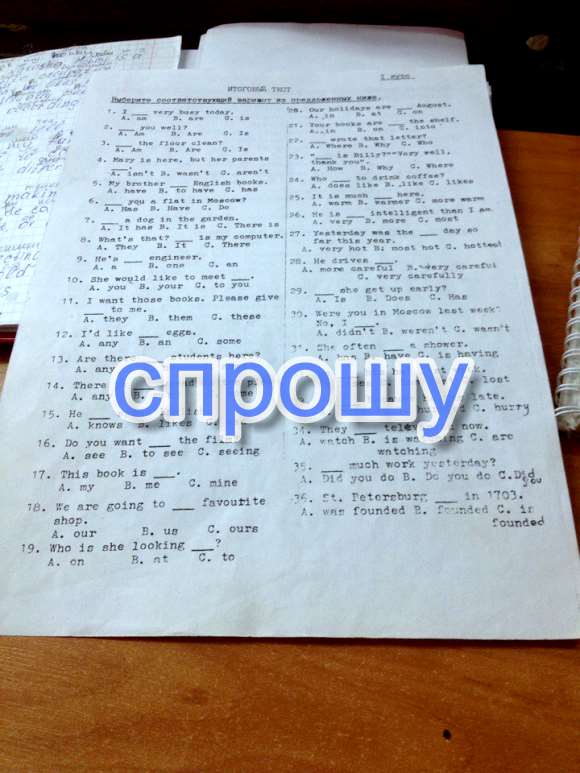 1 курс.
ИТОГОВЫЙ ТЕСТ
Выберите соответствующий вариант из предложенных ниже.
1. I ___ very busy today.
A. am B. are C. is
2. ___ you well?
A. Am B. Are C. Is
3. ___ the floor clean?
A. Am B. Are C. Is
4. Mary is here, but her parents
___.
A. isn't B. wasn't C. aren't
5. My brother ___ English books.
A. have B. to have C. has
6. ___ you a flat in Moscow?
A. Has B. Have C. Do
7. ___ a dog in the garden.
A. It has B. It is C. There is
8. What's that? ___ is my computer.
A. They B. It C. There
9. He's ___ engineer.
A. a B. one C. an
10. She would like to meet ___.
A. you B. your C. to you
11. I want those books. Please give
___ to me.
A. they B. them C. these
12. I'd like ___ eggs.
A. any B. an C. some
13. Are there ___ students here?
A. any
14. There
A. any
15. He ___
A. knows B. likes C.
16. Do you want ___ the film?
A. see B. to see C. seeing
17. This book is ___.
A. my B. me C. mine
18. We are going to ___ favourite
shop.
A. our B. us C. ours
19. Who is she looking ___?
A. on B. at C. to
20. Our holidays are ___ August.
A. in B. at C. on
21. Your books are ___ the shelf.
A. in B. on C. into
22. ___ wrote that letter?
A. Where B. Why C. Who
23. "___ is Billy?" "Very well,
thank you".
A. How B. Why C. Where
24. Who ___ to drink coffee?
A. does like B. like C. likes
25. It is much ___ here.
A. warm B. warmer C. more warm
26. He is ___ intelligent than I am.
A. very B. more C. most
27. Yesterday was the ___ day so
far this year.
A. very hot B. most hot C. hottest
28. He drives ___.
A. more careful B. very careful
C. very carefully
29. ___ she get up early?
A. Is B. Does C. Has
30. Were you in Moscow last week?
No, I ___.
A. didn't B. weren't C. wasn't
31. She often ___ a shower.
A. has B. have C. is having
lost
late.
C. hurry
34. They ___ television now.
A. watch B. is watching C. are
watching
35. ___ much work yesterday?
A. Did you do B. Do you do C. Did
you
36. St. Petersburg ___ in 1703.
A. was founded B. founded C. is
founded
спрошу